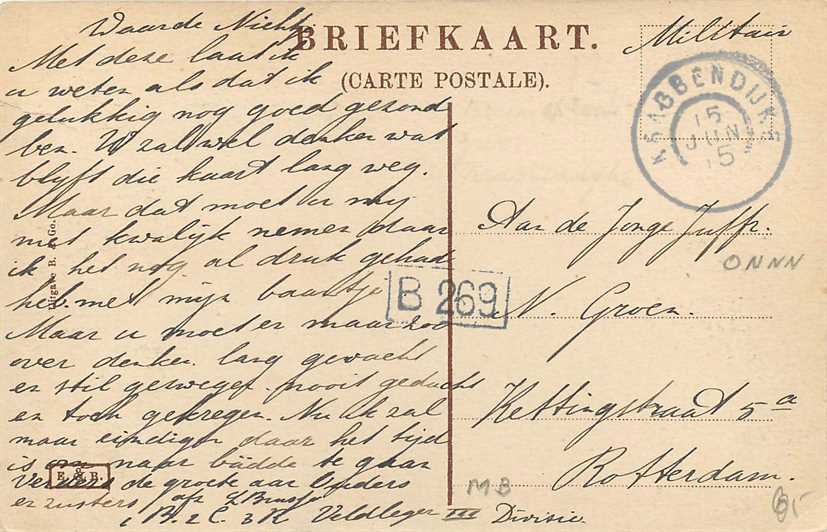 BRIEFKAART.
(CARTE POSTALE).
Militair
KRABBENDIJKE
15
JUN
15
Waarde Nicht
Met deze laat ik
u weten als dat ik
gelukkig nog goed gezond
ben. U zal wel denken wat
blyft die kaart lang weg.
Maar dat moet u my
niet kwalijk nemen daar
ik het nog al druk gehad
heb met mijn baantje
Maar u moet er maar zoo
over denken. lang gewacht
en stil gezwegen nooit gedacht
en toch gekregen. Nu ik zal
maar eindigen daar het tijd
is om naar bedde te gaan
de groete aan Ouders
en zusters
Veldleger III Divisie
B 269
Aan de Jonge Juffr.
N. Groen.
Kettingstraat 5a
Rotterdam.
ONNN
MB
Uitgave B. & Go.
E. & B.